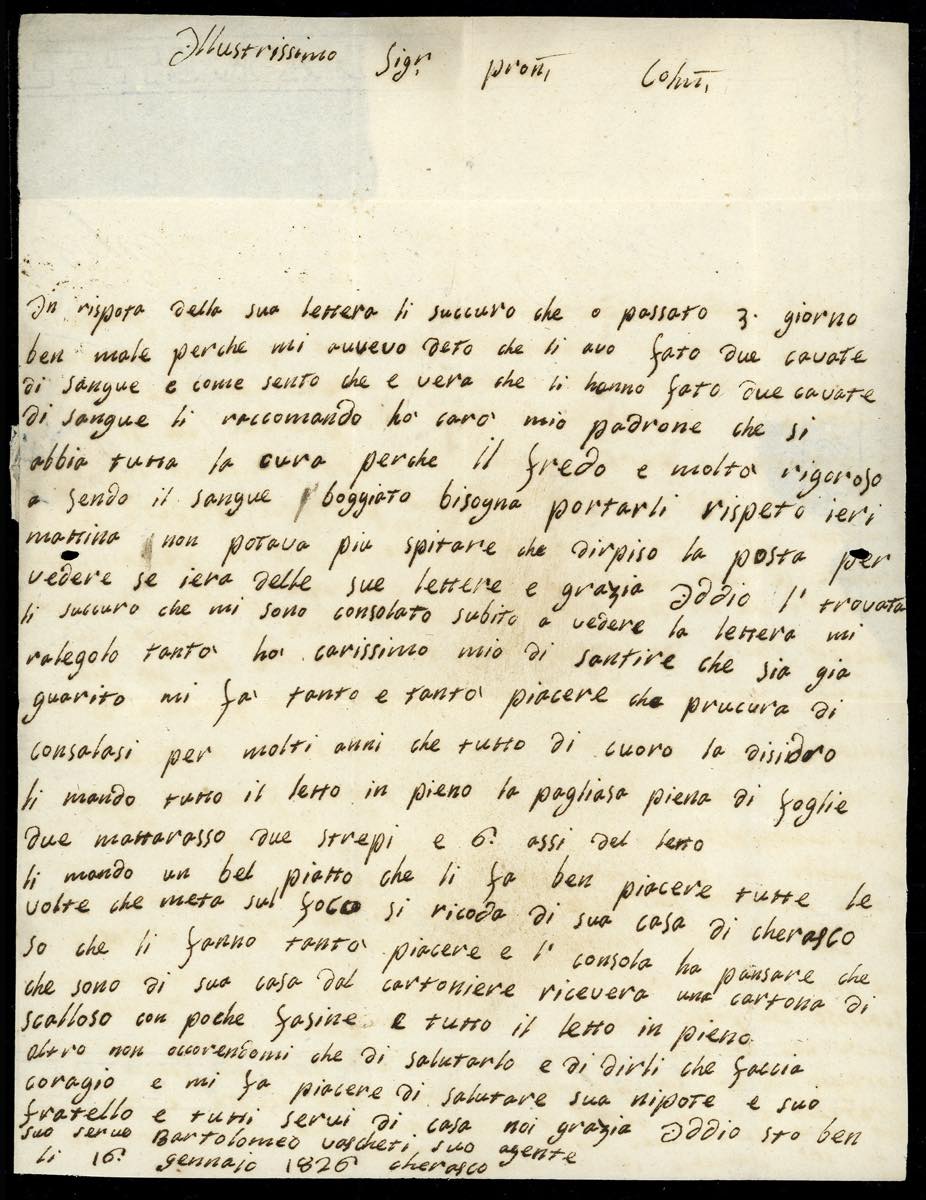 Illustrissimo Sigr pron Colm
In rispota della sua lettera li succuro che o passato 3. giorno
ben male perche mi auvevo deto che li avo fato due cavate
di sangue e come sento che e vera che li hanno fato due cavate
di sangue li raccomando ho caro mio padrone che si
abbia tutta la cura perche il fredo e molto rigoroso
a sendo il sangue boggiato bisogna portarli rispeto ieri
mattina non potava piu spitare che dirpiso la posta per
vedere se iera delle sue lettere e grazia Iddio l' trovata
li succuro che mi sono consolato subito a vedere la lettera mi
ralegolo tanto ho carissimo mio di santire che sia gia
guarito mi fa tanto e tanto piacere che prucura di
consalasi per molti anni che tutto di cuoro la disidro
li mando tutto il letto in pieno la pagliasa piena di foglie
due mattarasso due strepi e 6. assi del letto
li mando un bel piatto che li fa ben piacere tutte le
volte che meta sul foco si ricoda di sua casa di cherasco
so che li fanno tanto piacere e l' consola ha pansare che
che sono di sua casa dal cartoniere ricevera una cartona di
scalloso con poche fasine e tutto il letto in pieno
altro non occorendomi che di salutarlo e di dirli che faccia
coragio e mi fa piacere di salutare sua nipote e suo
fratello e tutti servi di casa noi grazia Iddio sto ben
suo servo Bartolomeo vascheti suo agente
li 16. gennajo 1826 cherasco